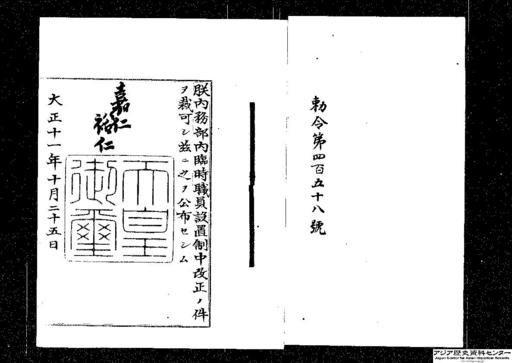 勅令第四百五十八號
朕内務部内臨時職員設置制中改正ノ件
ヲ裁可シ茲ニ之ヲ公布セシム
嘉仁
裕仁
天皇御璽
大正十一年十月二十五日
アジア歴史資料センター
Japan Center for Asian Historical Records